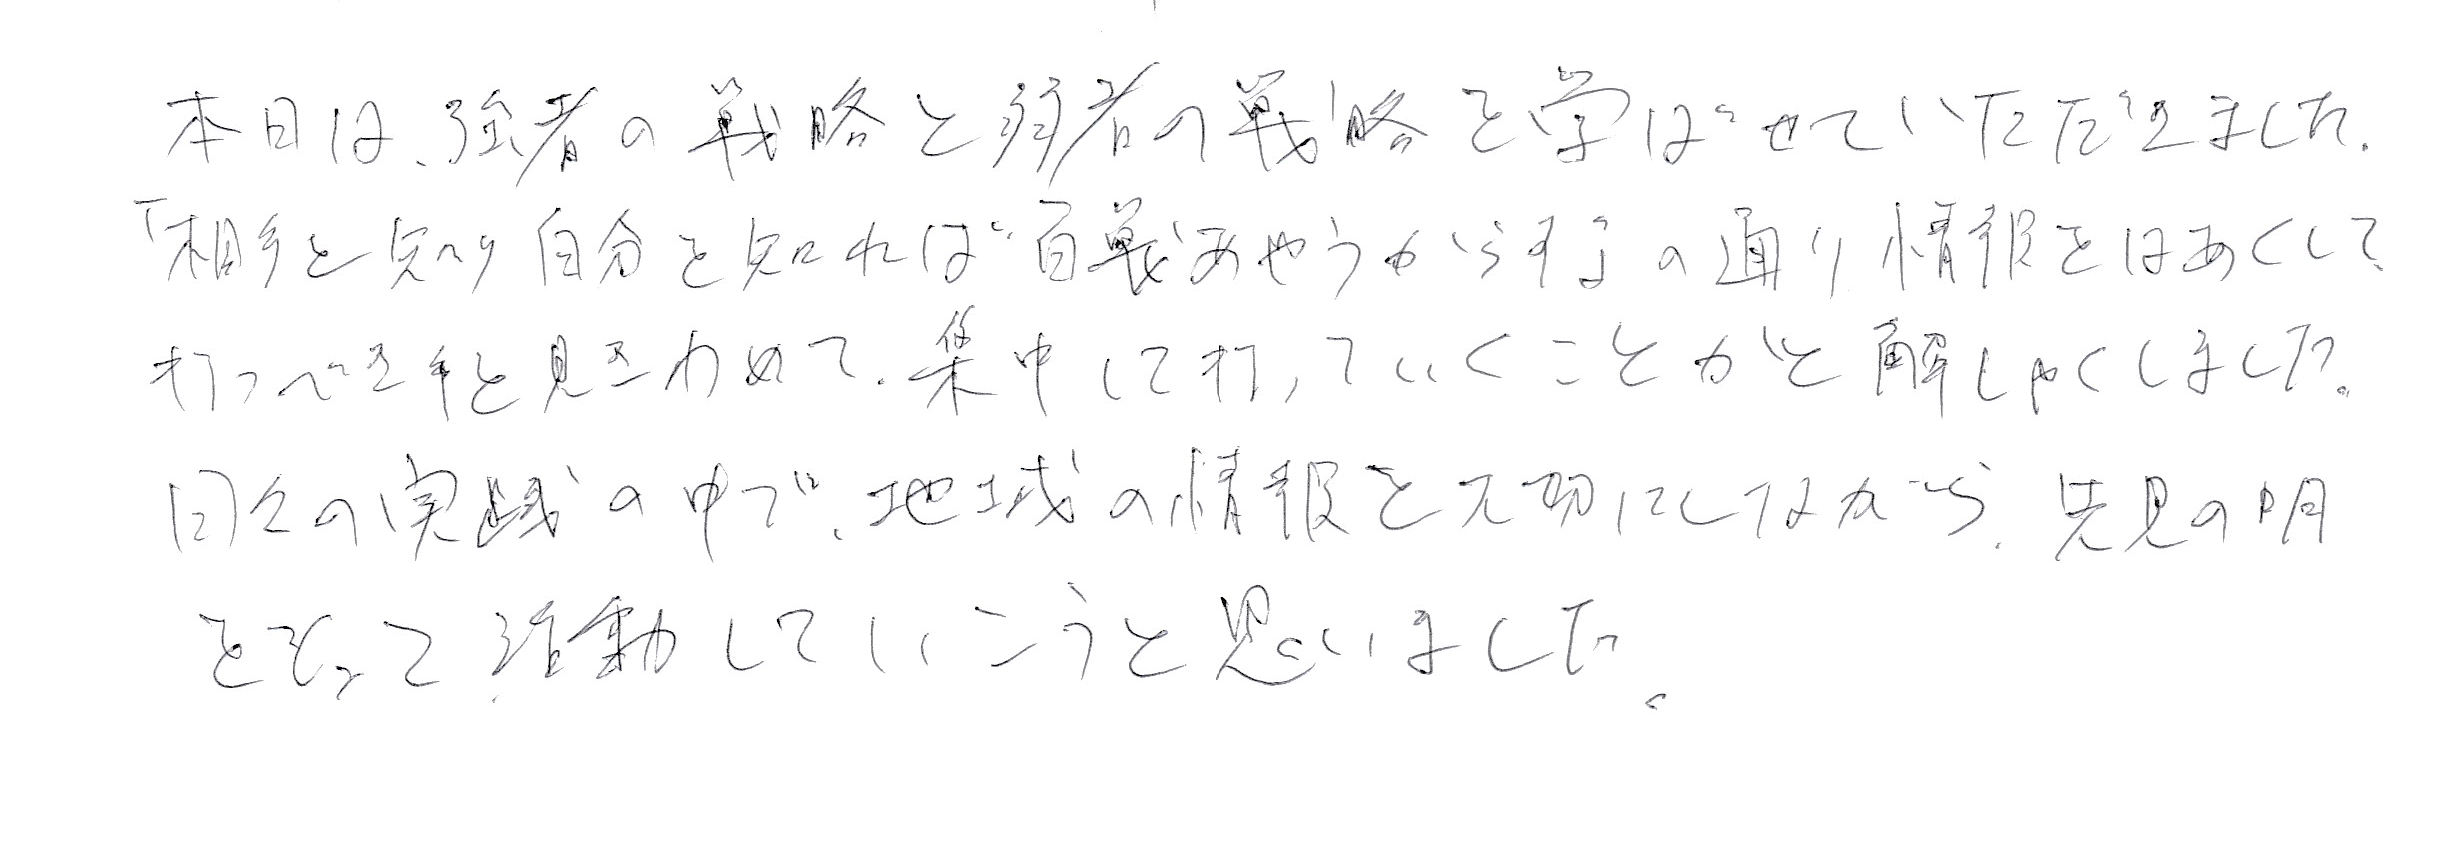 本日は、強者の戦略と弱者の戦略を学ばせていただきました。
「相手を知り自分を知れば百戦あやうからず」の通り情報をはあくして
打つべき手を見きわめて、集中して打っていくことかと解しゃくしました。
日々の実践の中で、地域の情報を大切にしながら、先見の明
をもって活動していこうと思いました。